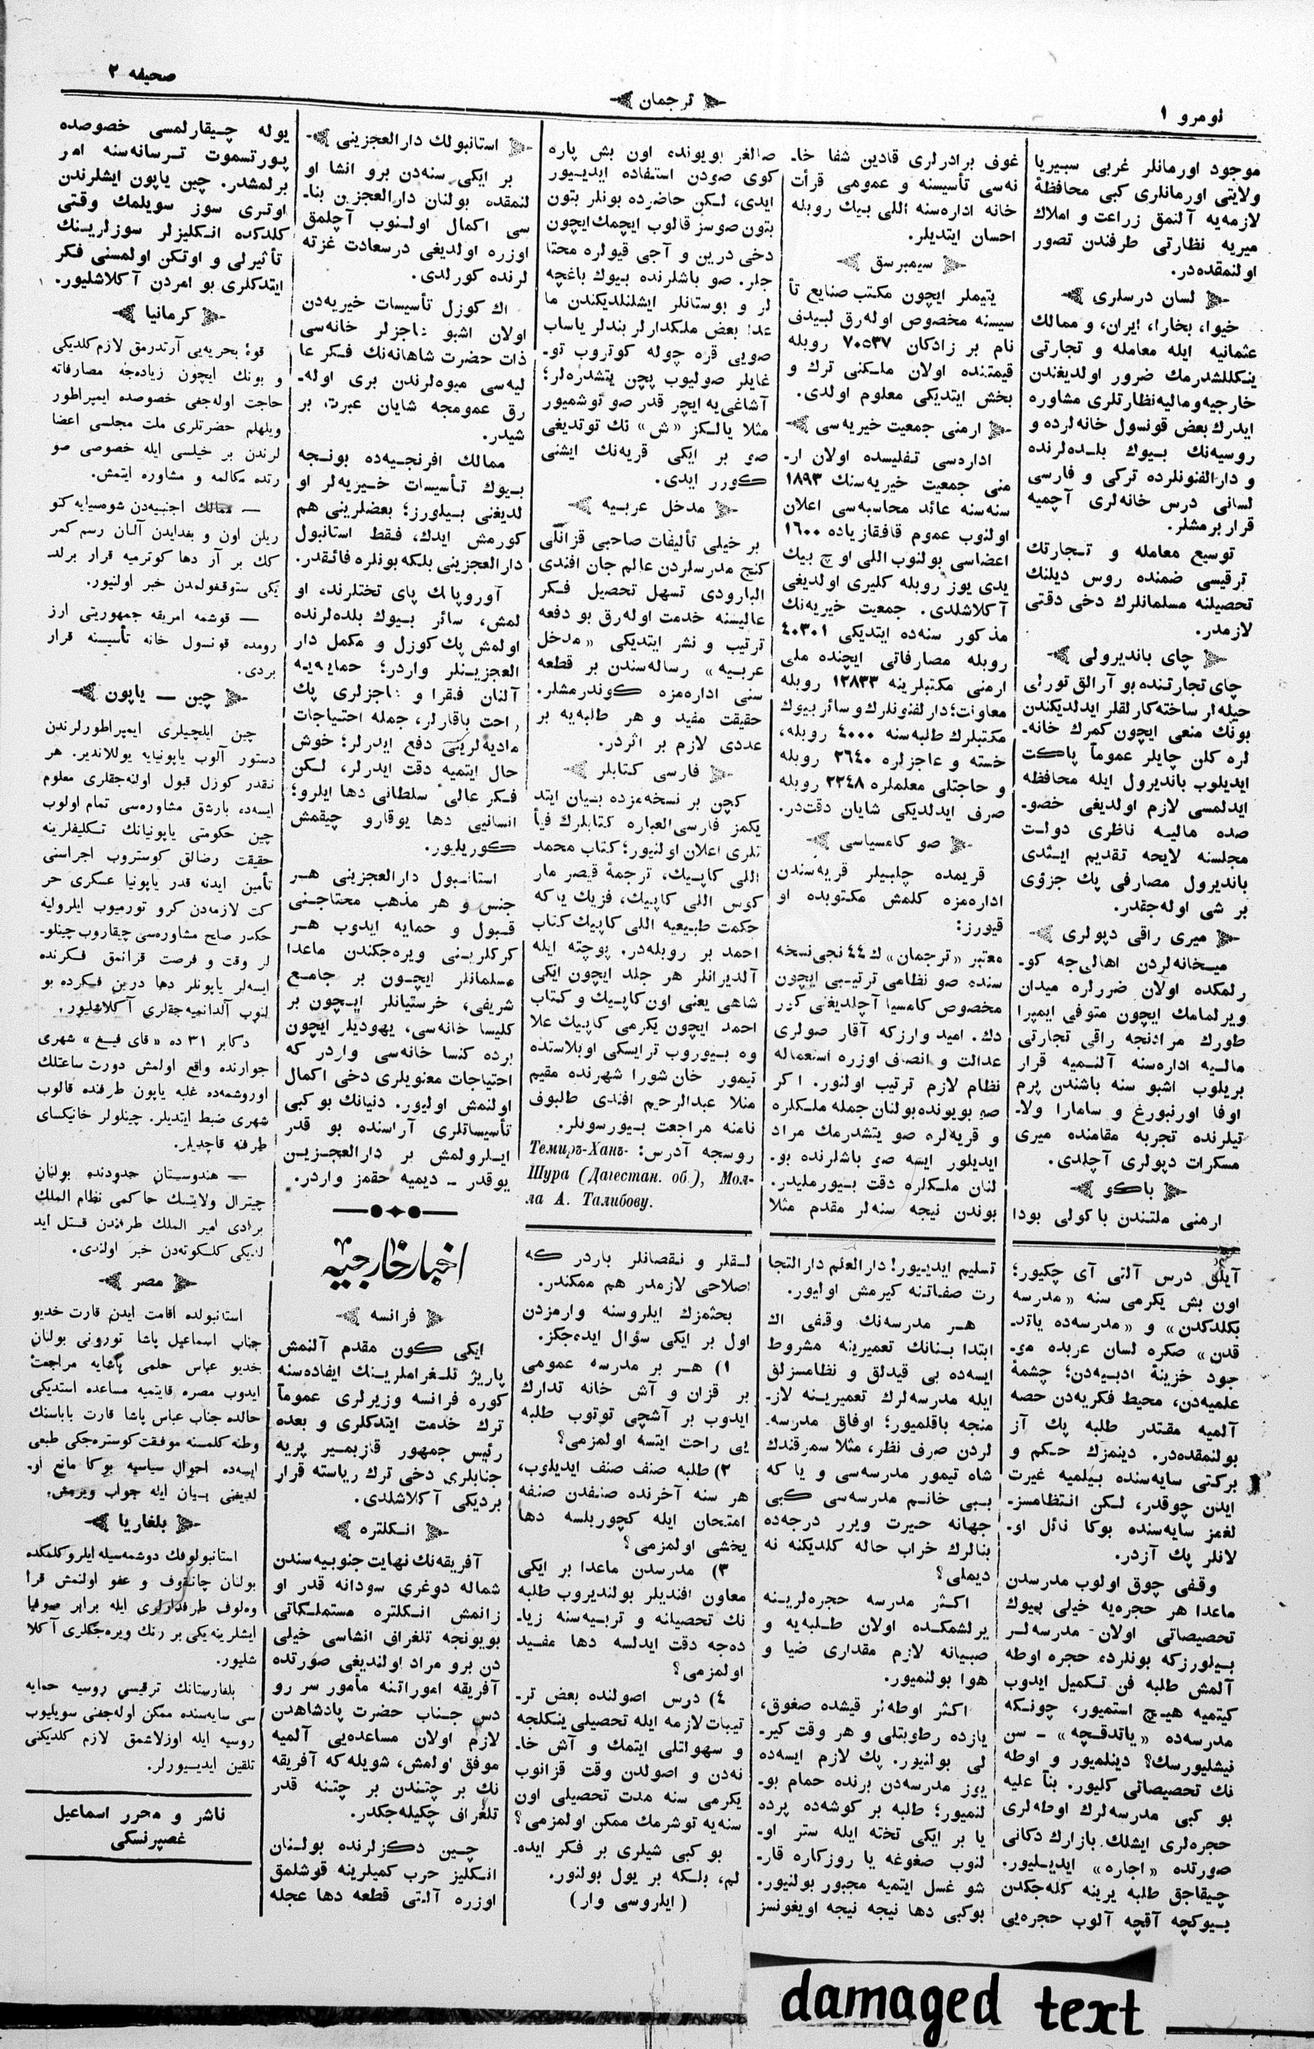 نومرو ۱
ترجمان
صحیفه ۲
موجود اورمانلر غربی سیبیریا
ولایتی اورمانلری کبی محافظهٔ
لازمه‌یه آلنمق زراعت و املاك
میریه نظارتی طرفندن تصور
اولنمقده‌در.
لسان درسلری
خیوا، بخارا، ایران، و ممالك
عثمانیه ایله معامله و تجارتی
ینکللشدرمك ضرور اولدیغندن
خارجیه و مالیه نظارتلری مشاوره
ایدرك بعض قونسول خانه‌لرده و
روسیه‌نك بیوك بلده‌لرنده
و دارالفنونلرده ترکی و فارسی
لسانی درس خانه‌لری آچمیه
قرار برمشلر.
توسیع معامله و تجارتك
ترقیسی ضمنده روس دیلنك
تحصیلنه مسلمانلرك دخی دقتی
لازمدر.
چای باندیرولی
چای تجارتنده بو آرالق تورلی
حیله‌لر ساخته‌کارلقلر ایدلدیکندن
بونك منعی ایچون کمرك خانه‌ـ
لره کلن چایلر عموماً پاکت
ایدیلوب باندیرول ایله محافظه
ایدلمسی لازم اولدیغی خصوـ
صده مالیه ناظری دولت
مجلسنه لایحه تقدیم ایتدی
باندیرول مصارفی پك جزؤی
بر شی اوله‌جقدر.
میری راقی دپولری
میخانه‌لردن اهالی‌جه کوـ
رلمکده اولان ضررلره میدان
ویرلمامك ایچون متوفی ایمپرا
طورك مرادنجه راقی تجارتی
مالیه اداره‌سنه آلنمیه قرار
بریلوب اشبو سنه باشندن پرم
اوفا اورنبورغ و سامارا ولاـ
یتلرنده تجربه مقامنده میری
مسکرات دپولری آچلدی.
باکو
ارمنی ملتندن باکولی بودا
غوف برادرلری قادین شفا خاـ
نه‌سی تأسیسنه و عمومی قرأت
خانه اداره‌سنه اللی بیك روبله
احسان ایتدیلر.
سیمبرسق
یتیملر ایچون مکتب صنایع تأ
سیسنه مخصوص اوله‌رق لبیدف
نام بر زادکان ۷۰۵۳۷ روبله
قیمتنده اولان ملکنی ترك و
بخش ایتدیکی معلوم اولدی.
ارمنی جمعیت خیریه‌سی
اداره‌سی تفلیسده اولان ارـ
منی جمعیت خیریه‌سنك ۱۸۹۳
سنه‌سنه عائد محاسبه‌سی اعلان
اولنوب عموم قافقازیاده ۱۶۰۰
اعضاسی بولنوب اللی اوچ بیك
یدی یوز روبله کلیری اولدیغی
آکلاشلدی. جمعیت خیریه‌نك
مذکور سنه‌ده ایتدیکی ۴۰۳۰۱
روبله مصارفاتی ایچنده ملی
ارمنی مکتبلرینه ۱۲۸۳۳ روبله
معاونت؛ دارلفنونلرك و سائر بیوك
مکتبلرك طلبه‌سنه ۴۰۰۰ روبله،
خسته و عاجزلره ۲۶۴۰ روبله
و حاجتلی معلملره ۲۲۴۸ روبله
صرف ایدلدیکی شایان دقت‌در.
صو کامسیاسی
قریمده چلبیلر قریه‌سندن
اداره‌مزه کلمش مکتوبده او
قیورز:
معتبر «ترجمان»ك ۴۴ نجی نسخه
سنده صو نظامی ترتیبی ایچون
مخصوص کامسیا آچلدیغنی کور
دك. امید وارزکه آقار صولری
عدالت و انصاف اوزره استعماله
نظام لازم ترتیب اولنور. اکر
صو بویونده بولنان جمله ملکلره
و قریه‌لره صو یتشدرمك مراد
ایدیلور ایسه صو باشلرنده بوـ
لنان ملکلره دقت بیورملیدر.
بوندن نیجه سنه‌لر مقدم مثلا
صالغر بویونده اون بش پاره
کوی صودن استفاده ایدییور
ایدی، لکن حاضرده بونلر بتون
بتون صوسز قالوب ایچمك ایچون
دخی درین و آجی قیولره محتا
جلر. صو باشلرنده بیوك باغچه
لر و بوستانلر ایشلنلدیکندن ما
عدا بعض ملکدارلر بندلر یاساب
صویی قره چوله کوتروب توـ
غایلر صولیوب پچن یتشدره‌لر؛
آشاغی‌یه ایچر قدر صو توشمیور
مثلا یالکز «ش» نك توتدیغی
صو بر ایکی قریه‌نك ایشنی
کورر ایدی.
مدخل عربیه
بر خیلی تألیفات صاحبی قزانلی
کنج مدرسلردن عالم جان افندی
البارودی تسهل تحصیل فکر
عالیسنه خدمت اوله‌رق بو دفعه
ترتیب و نشر ایتدیکی «مدخل
عربیه» رساله‌سندن بر قطعه
سنی اداره‌مزه کوندرمشلر.
حقیقت مفید و هر طلبه‌یه بر
عددی لازم بر اثردر.
فارسی کتابلر
کچن بر نسخه‌مزده بیان ایتد
یکمز فارسی العباره کتابلرك فیأ
تلری اعلان اولنیور؛ کتاب محمد
اللی کاپیك، ترجمهٔ قیصر مار
کوس اللی کاپیك، فزیك یا که
حکمت طبیعیه اللی کاپیك کتاب
احمد بر روبله‌در. پوچته ایله
آلدیرانلر هر جلد ایچون ایکی
شاهی یعنی اون کاپیك و کتاب
احمد ایچون یکرمی کاپیك علا
وه بیوروب ترایسکی اوبلاستده
تیمور خان شورا شهرنده مقیم
منلا عبدالرحیم افندی طلبوف
نامنه مراجعت بیورسونلر.
روسجه آدرس: Темиръ-Ханъ-
Шура (Дагестан. об.), Мол-
ла А. Талибову.
استانبولك دارالعجزینی
بر ایکی سنه‌دن برو انشا او
لنمقده بولنان دارالعجزین بناـ
سی اکمال اولنوب آچلمق
اوزره اولدیغی درسعادت غزته
لرنده کورلدی.
اك کوزل تأسیسات خیریه‌دن
اولان اشبو عاجزلر خانه‌سی
ذات حضرت شاهانه‌نك فکر عا
لیه‌سی میوه‌لرندن بری اولەـ
رق عمومجه شایان عبرت بر
شیدر.
ممالك افرنجیه‌ده بونجه
بیوك تأسیسات خیریه‌لر او
لدیغنی بیلورز؛ بعضلرینی هم
کورمش ایدك، فقط استانبول
دارالعجزینی بلکه بونلره فائقدر.
آوروپانك پای تختلرند، او
لمش، سائر بیوك بلده‌لرنده
اولمش پك کوزل و مکمل دار
العجزینلر واردر؛ حمایه‌یه
آلنان فقرا و عاجزلری پك
راحت باقارلر، جمله احتیاجات
مادیه‌لرینی دفع ایدرلر؛ خوش
حال ایتمیه دقت ایدرلر، لکن
فکر عالی سلطانی دها ایلرو؛
انسانیی دها یوقارو چیقمش
کوریلیور.
استانبول دارالعجزینی هر
جنس و هر مذهب محتاجنی
قبول و حمایه ایدوب هر
کرکلرینی ویره‌جکندن ماعدا
مسلمانلر ایچون بر جامع
شریفی، خرستیانلر ایچون بر
کلیسا خانه‌سی، یهودیلر ایچون
برده کنسا خانه‌سی واردر که
احتیاجات معنویلری دخی اکمال
اولنمش اولیور. دنیانك بو کبی
تأسیساتلری آراسنده بو قدر
ایلرولمش بر دارالعجزین
یوقدر ـ دیمیه حقمز واردر.
اخبار خارجیه
فرانسه
ایکی کون مقدم آلنمش
پاریژ تلغراملرینك ایفاده‌سنه
کوره فرانسه وزیرلری عموماً
ترك خدمت ایتدکلری و بعده
رئیس جمهور قازیمیر پریه
جنابلری دخی ترك ریاسته قرار
بردیکی آکلاشلدی.
انکلتره
آفریقه‌نك نهایت جنوبیه‌سندن
شماله دوغری سودانه قدر او
زانمش انکلتره مستملکاتی
بویونجه تلغراف انشاسی خیلی
دن برو مراد اولندیغی صورتده
آفریقه اموراتنه مأمور سر رو
دس جناب حضرت پادشاهدن
لازم اولان مساعده‌یی آلمیه
موفق اولمش، شویله که آفریقه
نك بر چتندن بر چتنه قدر
تلغراف چکیله‌جکدر.
چین دکزلرنده بولنان
انکلیز حرب کمیلرینه قوشلمق
اوزره آلتی قطعه دها عجله
یوله چیقارلمسی خصوصده
پورتسموت ترسانه‌سنه امر
برلمشدر. چین یاپون ایشلرندن
اوتری سوز سویلمك وقتی
کلدکده انکلیزلر سوزلرینك
تأثیرلی و اوتکن اولمسنی فکر
ایتدکلری بو امردن آکلاشلیور.
کرمانیا
قوهٔ بحریه‌یی آرتدرمق لازم کلدیکی
و بونك ایچون زیاده‌جه مصارفاته
حاجت اوله‌جغی خصوصده ایمپراطور
ویلهلم حضرتلری ملت مجلسی اعضا
لرندن بر خیلسی ایله خصوصی صو
رتده مکالمه و مشاوره ایتمش.
— ممالك اجنبیه‌دن شوسیایه کتو
ریلن اون و بغدایدن آلنان رسم کمر
کك بر آز دها کوترمیه قرار برلد
یکی ستوقغولمدن خبر اولنیور.
— قوشمه امریقه جمهوریتی ارز
رومده قونسول خانه تأسیسنه قرار
بردی.
چین — یاپون
چین ایلچیلری ایمپراطورلرندن
دستور آلوب یاپونیایه یوللاندیر. هر
نقدر کوزل قبول اوله‌جقلری معلوم
ایسه‌ده بارشق مشاوره‌سی تمام اولوب
چین حکومتی یاپونیانك تکلیفلرینه
حقیقت رضالق کوستروب اجراسنی
تأمین ایدنه قدر یاپونیا عسکری حر
کت لازمه‌دن کرو تورمیوب ایلرولیه
جکدر صلح مشاوره‌سی چیقاروب چینلوـ
لر وقت و فرصت قزانمق فکرنده
ایسه‌لر یاپونلر دها درین فکرده بو
لنوب آلدانمیه‌جقلری آکلاشلیور.
دکابر ۳۱ ده «قای فینغ» شهری
جوارنده واقع اولمش دورت ساعتلك
اوروشمه‌ده غلبه یاپون طرفنده قالوب
شهری ضبط ایتدیلر. چینلولر خانیکای
طرفنه قاچدیلر.
— هندوستان حدودنده بولنان
چیترال ولایتنك حاکمی نظام الملك
برادی امیر الملك طرفندن قتل اید
لدیکی کلکوته‌دن خبر اولندی.
مصر
استانبولده اقامت ایدن قارت خدیو
جناب اسماعیل پاشا تورونی بولنان
خدیو عباس حلمی پاشایه مراجعت
ایدوب مصره قایتمیه مساعده استدیکی
حالده جناب عباس پاشا قارت باباسنك
وطنه کلمسنه موفقت کوستره‌جکی طبیعی
ایسه‌ده احوال سیاسیه بوکا مانع اوـ
لدیغنی بیان ایله جواب ویرمش.
بلغاریا
استانبولوفك دوشمه‌سیله ایلرو کلمکده
بولنان چانقوف و عفو اولنمش قرا
وه‌لوف طرفدارلری ایله برابر صوفیا
ایشلرینه یکی بر رنك ویره‌جکلری آکلا
شلیور.
بلغارستانك ترقیسی روسیه حمایه
سی سایه‌سنده ممکن اوله‌جغنی سویلیوب
روسیه ایله اوزلاشمق لازم کلدیکنی
تلقین ایدییورلر.
ناشر و محرر اسماعیل
غصپرنسکی
آیلق درس آلتی آی چکیور؛
اون بش یکرمی سنه «مدرسه
بکلدکدن» و «مدرسه‌ده یاتدـ
قدن» صکره لسان عربده موـ
جود خزینهٔ ادبیه‌دن؛ چشمهٔ
علمیه‌دن، محیط فکریه‌دن حصه
آلمیه مقتدر طلبه پك آز
بولنمقده‌در. دینمزك حکم و
برکتی سایه‌سنده بیلمیه غیرت
ایدن چوقدر، لکن انتظامسزـ
لغمز سایه‌سنده بوکا نائل اوـ
لانلر پك آزدر.
وقفی چوق اولوب مدرسدن
ماعدا هر حجره‌یه خیلی بیوك
تحصیصاتی اولان مدرسه‌لر
بیلورزکه بونلرد، حجره اوطه
آلمش طلبه فن تکمیل ایدوب
کیتمیه هیچ استمیور، چونکه
مدرسه‌ده «یاتدقچه» ـ سن
نیشلیورسك؟ دینلمیور و اوطه
نك تحصیصاتی کلیور. بنأ علیه
بو کبی مدرسه‌لرك اوطه‌لری
حجره‌لری ایشلك بازارك دکانی
صورتده «اجاره» ایدیلیور.
چیقاجق طلبه یرینه کله‌جکدن
بیوکچه آقچه آلوب حجره‌یی
تسلیم ایدییور! دارالعلم دارالتجا
رت صفاتنه کیرمش اولیور.
هر مدرسه‌نك وقفی اك
ابتدا بنانك تعمیرینه مشروط
ایسه‌ده بی قیدلق و نظامسزلق
ایله مدرسه‌لرك تعمیرینه لازـ
منجه باقلمیور؛ اوفاق مدرسەـ
لردن صرف نظر، مثلا سمرقندك
شاه تیمور مدرسه‌سی و یا که
بیبی خانم مدرسه‌سی کبی
جهانه حیرت ویرر درجه‌ده
بنالرك خراب حاله کلدیکنه نه
دیملی؟
اکثر مدرسه حجره‌لرینه
یرلشمکده اولان طلبه‌یه و
صبیانه لازم مقداری ضیا و
هوا بولنمیور.
اکثر اوطه‌لر قیشده صغوق،
یازده رطوبتلی و هر وقت کیرـ
لی بولنیور. پك لازم ایسه‌ده
یوز مدرسه‌دن برنده حمام بوـ
لنمیور؛ طلبه بر کوشه‌ده پرده
یا بر ایکی تخته ایله ستر اوـ
لنوب صغوغه یا روزکاره قارـ
شو غسل ایتمیه مجبور بولنیور.
بوکبی دها نیجه نیجه اویغونسز
لقلر و نقصانلر باردر که
اصلاحی لازمدر هم ممکندر.
بحثمزك ایلروسنه وارمزدن
اول بر ایکی سؤال ایده‌جکز.
۱) هر بر مدرسه عمومی
بر قزان و آش خانه تدارك
ایدوب بر آشچی توتوب طلبه
یی راحت ایتسه اولمزمی؟
۲) طلبه صنف صنف ایدیلوب،
هر سنه آخرنده صنفدن صنفه
امتحان ایله کچوریلسه دها
یخشی اولمزمی؟
۳) مدرسدن ماعدا بر ایکی
معاون افندیلر بولندیروب طلبه
نك تحصیلنه و تربیه‌سنه زیاـ
ده‌جه دقت ایدلسه دها مفید
اولمزمی؟
۴) درس اصولنده بعض ترـ
تیبات لازمه ایله تحصیلی ینکلجه
و سهولتلی ایتمك و آش خاـ
نه‌دن و اصولدن وقت قزانوب
یکرمی سنه مدت تحصیلی اون
سنه‌یه توشرمك ممکن اولمزمی؟
بو کبی شیلری بر فکر ایدەـ
لم، بلکه بر یول بولنور.
(ایلروسی وار)
damaged text